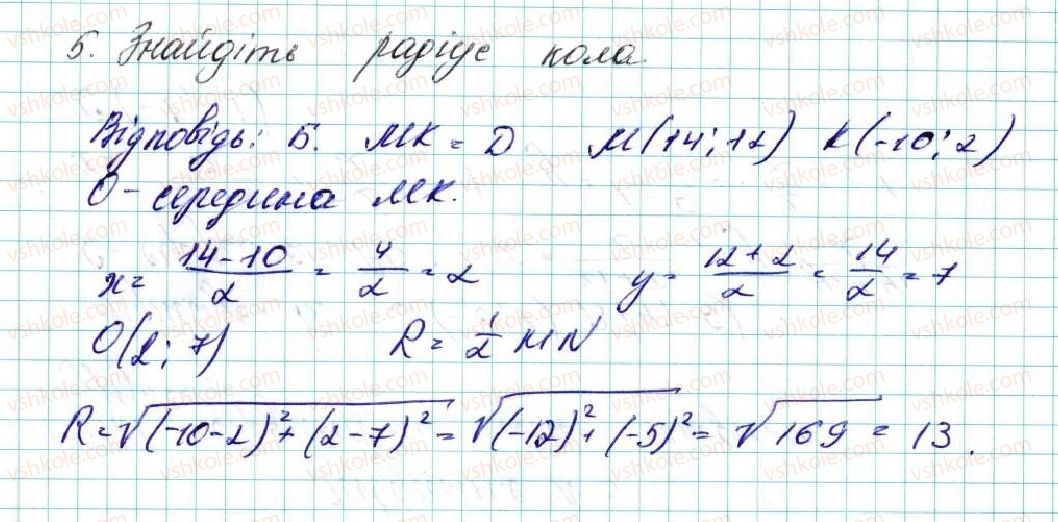 5. Знайдіть радіус кола.
Відповідь: Б. MK = D M(14; 12) K(-10; 2)
O - середина MK.
x = (14 - 10)/2 = 4/2 = 2 y = (12 + 2)/2 = 14/2 = 7
O(2; 7) R = 1/2 MN
R = √((-10-2)² + (2-7)²) = √((-12)² + (-5)²) = √169 = 13.